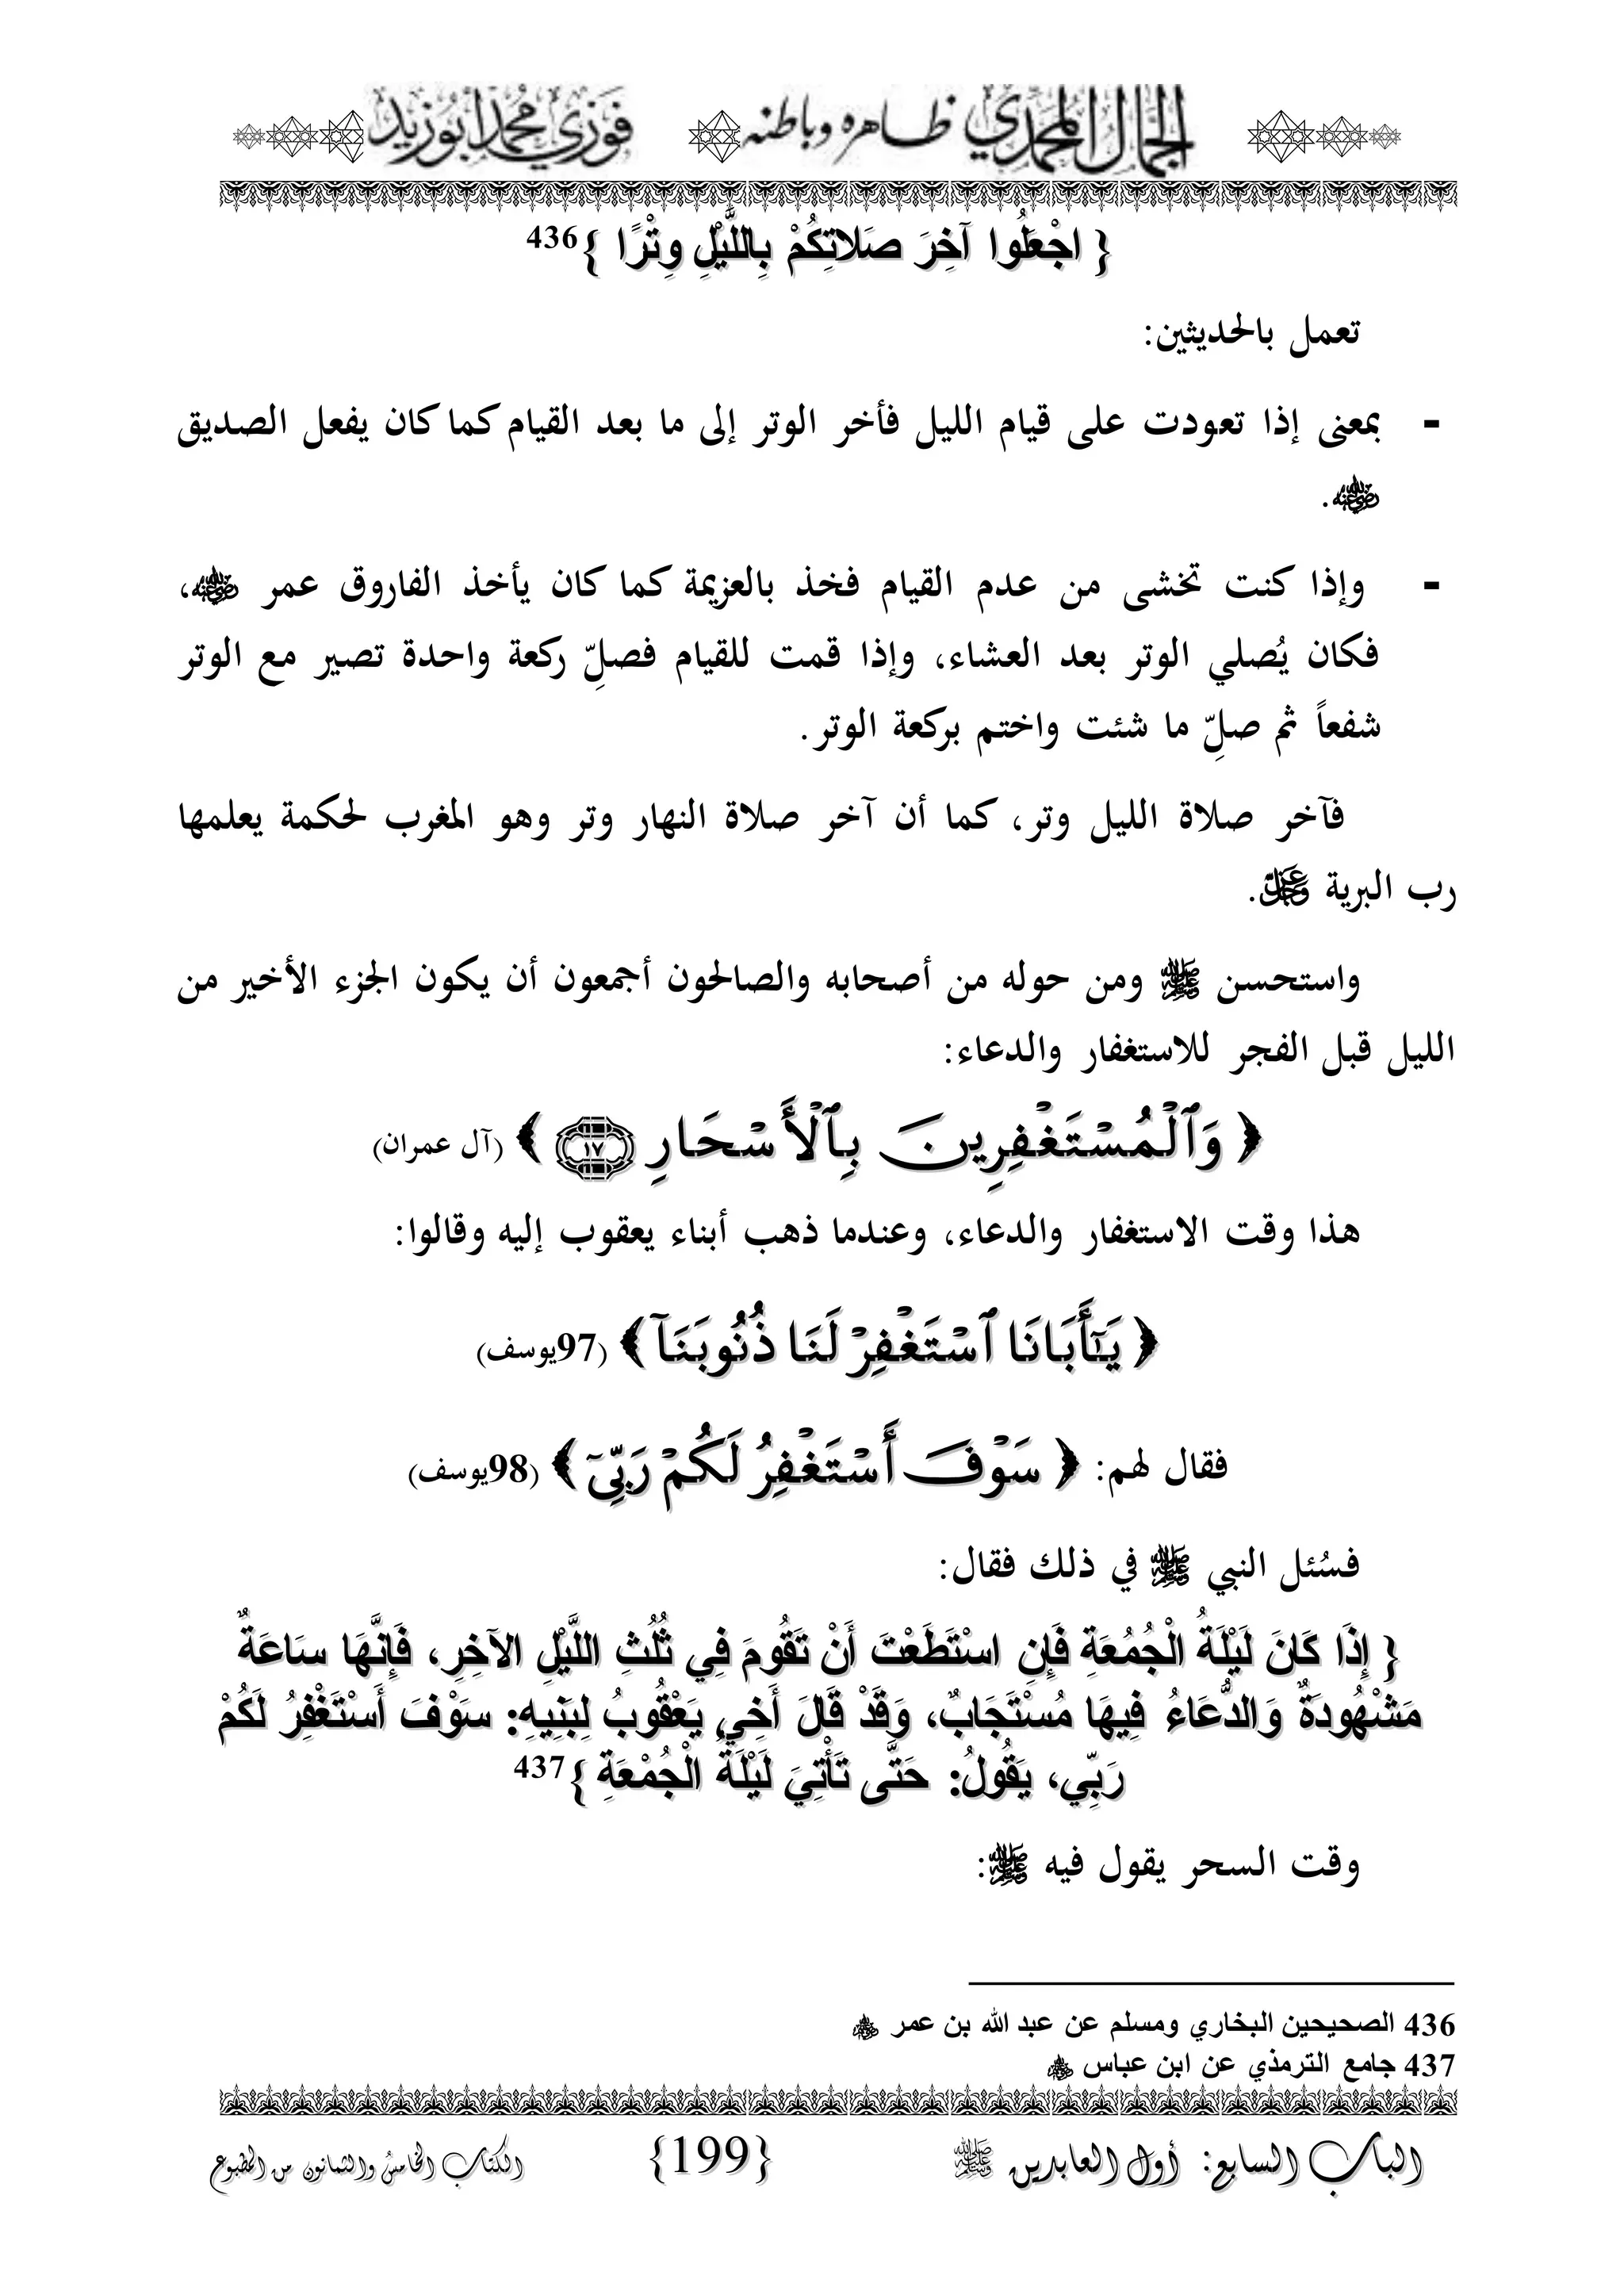 الجمال المحمدي ظاهره وباطنه فوزي محمد أبوزيد
{ اجْعَلُوا آخِرَ صَلاتِكُمْ بِاللَّيْلِ وِتْرًا }436
تعمل بالحديثين:
- بمعنى إذا تعودت على قيام الليل فأخر الوتر إلى ما بعد القيام كما كان يفعل الصديق
رضي الله عنه.
- وإذا كنت تخشى من عدم القيام فخذ بالعزيمة كما كان يأخذ الفاروق عمر رضي الله عنه،
فكان يُصلي الوتر بعد العشاء، وإذا قمت للقيام فصلِّ ركعة واحدة تصير مع الوتر
شفعاً ثم صلِّ ما شئت واختم بركعة الوتر.
فآخر صلاة الليل وتر، كما أن آخر صلاة النهار وتر وهو المغرب لحكمة يعلمها
رب البرية عز وجل.
واستحسن ﷺ ومن حوله من أصحابه والصالحون أجمعون أن يكون الجزء الأخير من
الليل قبل الفجر للاستغفار والدعاء:
﴿ وَٱلْمُسْتَغْفِرِينَ بِٱلْأَسْحَارِ ١٧ ﴾ (آل عمران)
هذا وقت الاستغفار والدعاء، وعندما ذهب أبناء يعقوب إليه وقالوا:
﴿ يَـٰٓأَبَانَا ٱسْتَغْفِرْ لَنَا ذُنُوبَنَآ ﴾ (97يوسف)
فقال لهم: ﴿ سَوْفَ أَسْتَغْفِرُ لَكُمْ رَبِّىٓ ﴾ (98يوسف)
فسُئل النبي ﷺ في ذلك فقال:
{ إِذَا كَانَ لَيْلَةُ الْجُمُعَةِ فَإِنِ اسْتَطَعْتَ أَنْ تَقُومَ فِي ثُلُثِ اللَّيْلِ الآخِرِ، فَإِنَّهَا سَاعَةٌ
مَشْهُودَةٌ وَالدُّعَاءُ فِيهَا مُسْتَجَابٌ، وَقَدْ قَالَ أَخِي يَعْقُوبُ لِبَنِيهِ: سَوْفَ أَسْتَغْفِرُ لَكُمْ
رَبِّي، يَقُولُ: حَتَّى تَأْتِيَ لَيْلَةُ الْجُمْعَةِ }437
وقت السحر يقول فيه ﷺ:
436 الصحيحين البخاري ومسلم عن عبد الله بن عمر رضي الله عنه
437 جامع الترمذي عن ابن عباس رضي الله عنه
الباب السابع: أول العابدين ﷺ {199} الكتاب الخامس والثمانون من المطبوع